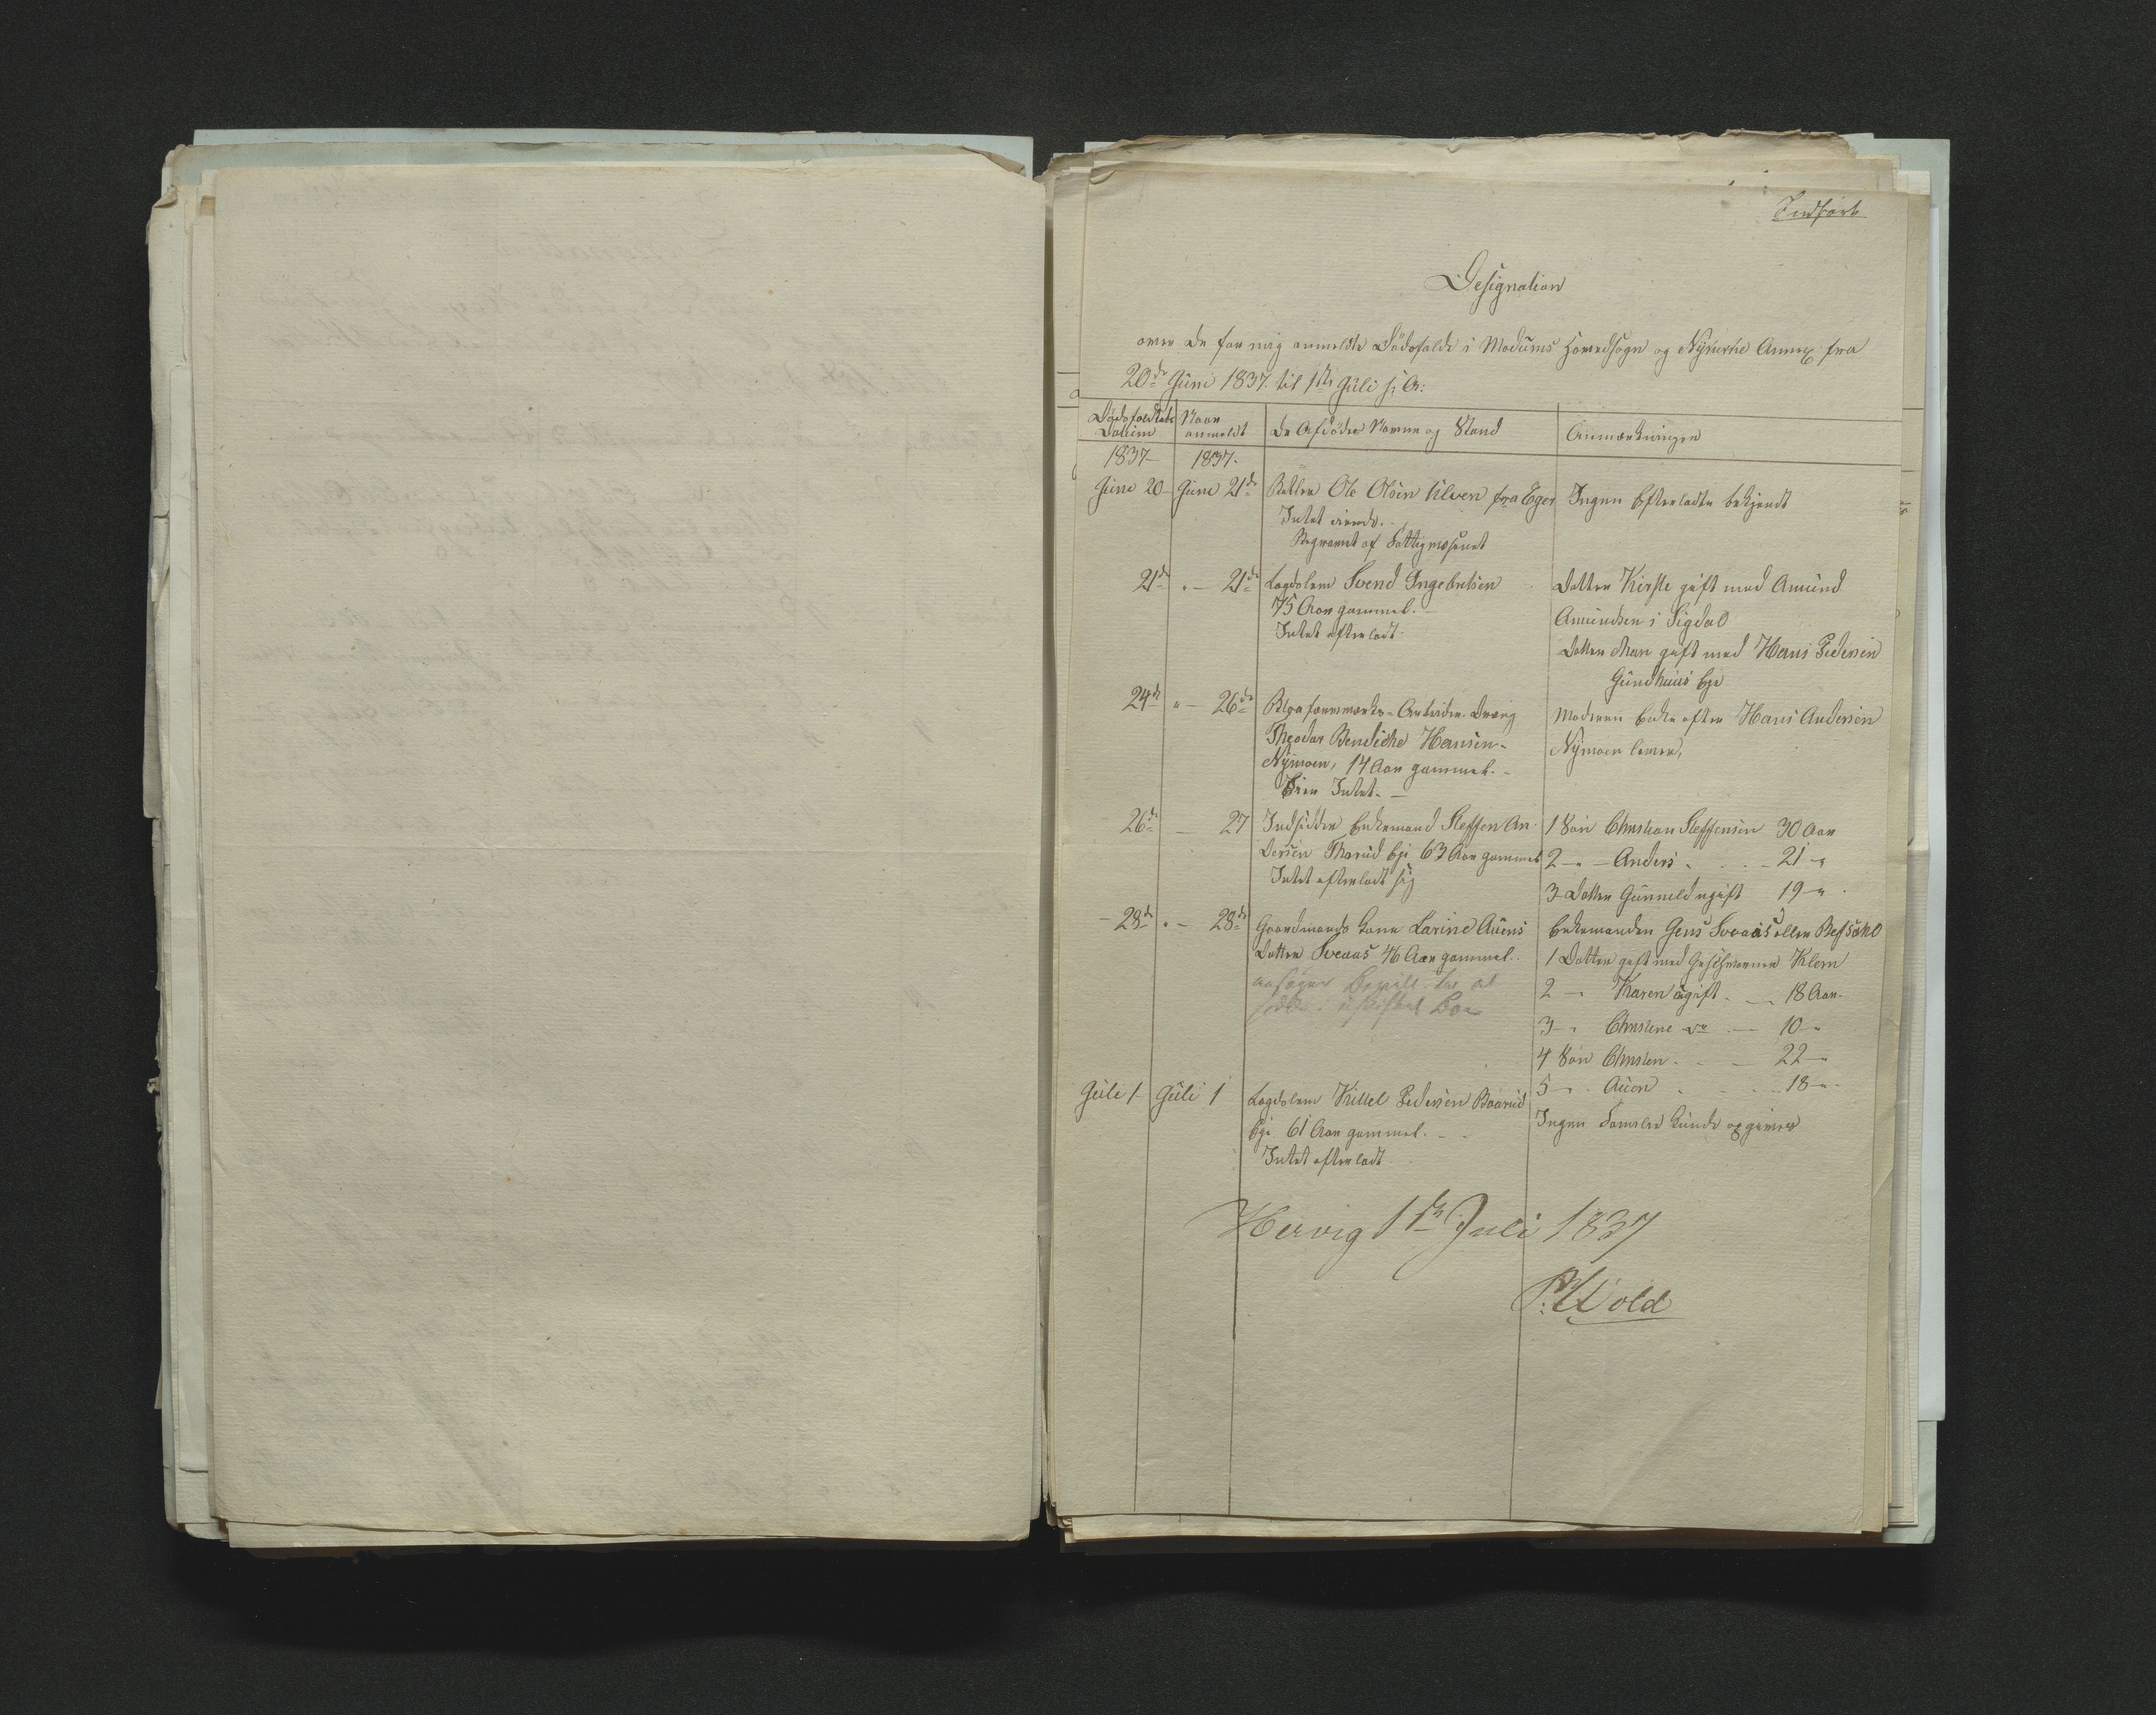 Indført
Designation
over de for mig anmeldte Dødsfalde i Modums Hovedsogn og Nykirke Annex fra
20de Juni 1837 til 1ste Juli s: A:
Dødsfaldets Datum | Naar anmeldt | De Afdødes Navne og Stand | Anmærkninger
1837 | 1837.
Juni 20 | Juni 21de | Betler Ole Olsen Ulven fra Eger | Ingen Efterladte bekjendt
Intet eiende.
Begravet af Fattigvæsenet
21de | " 21de | Lægdslem Svend Ingebretsen | Datter Kirste gift med Amund
75 Aar gammel. | Amundsen i Sigdal
Intet efterladt. | Datter Mari gift med Hans Pedersen
Gundhuus Eje
24de | " 26de | Blaafarveværks-Arbeider-Dreng | Moderen Enke efter Hans Andersen
Theodor Bendicke Hansen | Nymoen lever.
Nymoen, 14 Aar gammel.
Eier Intet.
26de | 27 | Indsidder Enkemand Steffen An- | 1 Søn Christian Steffensen 30 Aar
dersen Thorud Eje 63 Aar gammel | 2 " Anders 21 "
Intet efterladt sig | 3 Datter Gunneld ugift 19 "
28de | " 28de | Gaardmands Kone Larine Auens | Enkemanden Jens Sveaas eller Befsøhl
Datter Sveaas 46 Aar gammel. | 1 Datter gift med Klem
ansøger Bevill. til at | 2 " Karen ugift 18 Aar
sidde i uskiftet Boe | 3 " Christine do 10 "
4 Søn Christen 22 "
5 " Auen 18 "
Juli 1 | Juli 1 | Lægdslem Kittel Pedersen Baarud | Ingen Familie kunde opgives
Eje 61 Aar gammel.
Intet efterladt
Hervig 1ste Juli 1837
P: Wold